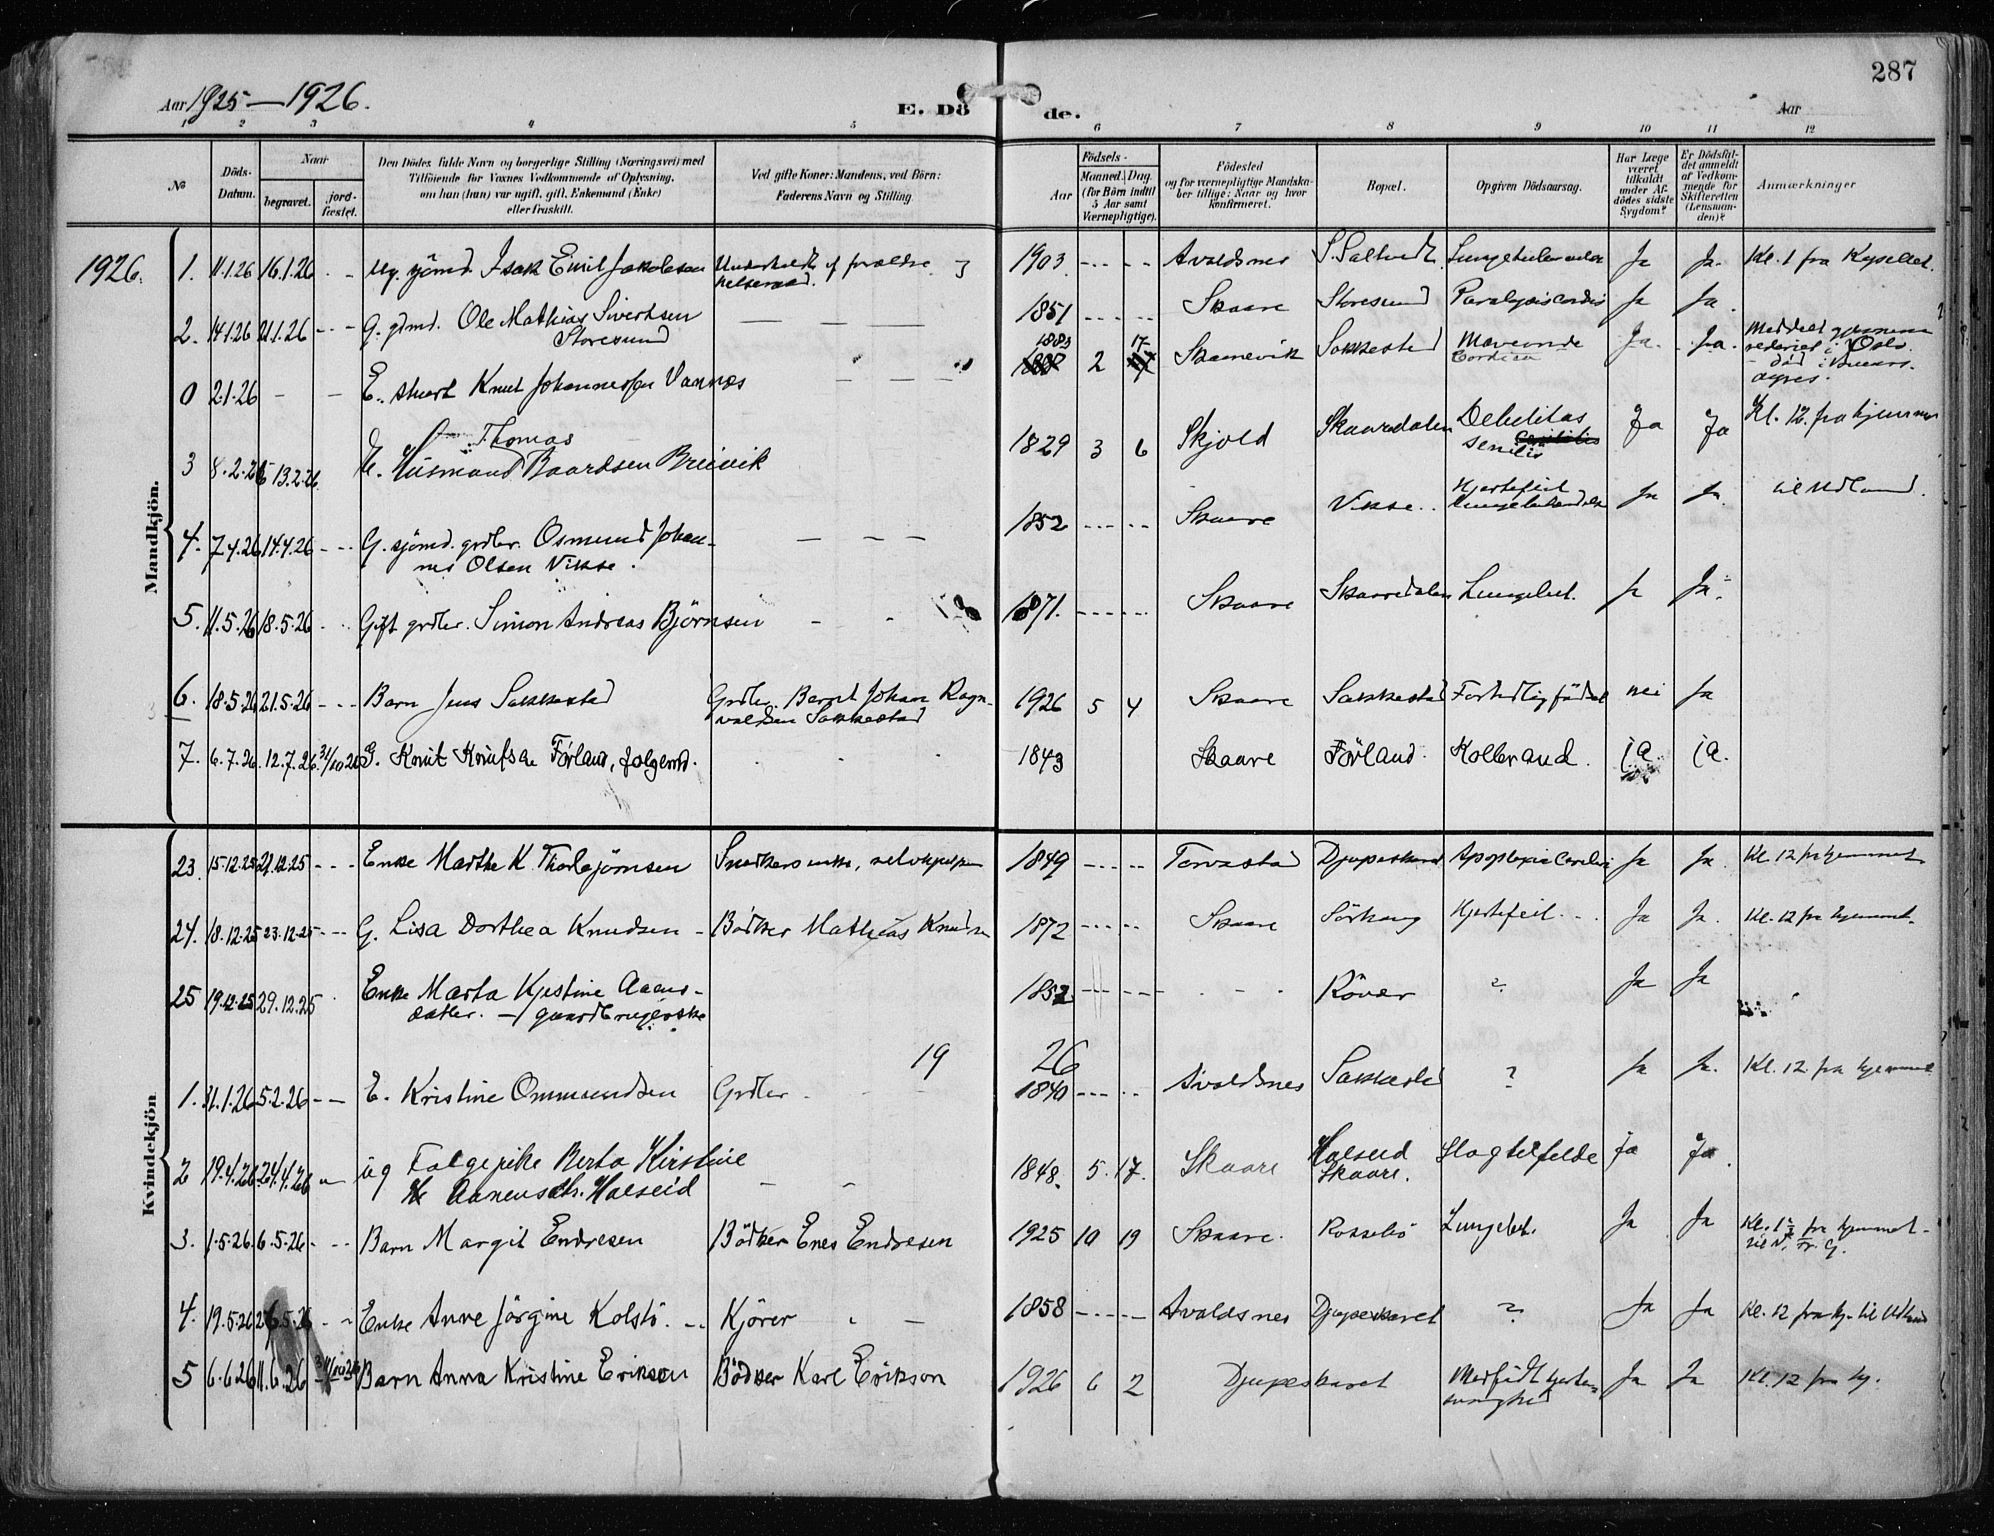 287
Aar 1925—1926.
E. Döde.
Aar
1 2 3 4 5 6 7 8 9 10 11 12
No
Döds-Datum.
Naar
begravet.
jordfæstet.
Den Dödes fulde Navn og borgerlige Stilling (Næringsvei) med
Tilföiende for Voxnes Vedkommende af Oplysning,
om han (hun) var ugift, gift, Enkemand (Enke)
eller fraskilt.
Ved gifte Koner: Mandens, ved Börn:
Faderens Navn og Stilling.
Födsels-
Aar
Maaned. Dag.
(for Börn indtil
5 Aar samt
Værnepligtige).
Födested
og for værnepligtige Mandskaber tillige: Naar og hvor
konfirmeret.
Bopæl.
Opgiven Dödsaarsag.
Har Læge
været
tilkaldt
under Afdödes sidste
Sygdom?
Er Dödsfaldet anmeldt
af Vedkommende for
Skifteretten
(Lensmanden)?
Anmærkninger
Mandkjön.
1926.
1. 11.1.26 16.1.26 Ug. sjömd. Isak Emil Jakobsen 1903 Avaldsnes S. Saltvedt Ja Ja. Kl. 1 fra Kapellet.
2. 14.1.26 21.1.26 G. gdmd. Ole Mathias Sivertsen
Storesund 1851 Skaare Storesund Paralysis Cordis Ja Ja.
0 2.1.26 E. stuert Knut Johannessen Vannes 1883 2 17 Skaanevik Sakkestad Ja. Ja.
3 8.2.26 13.2.26 E. Husmand Thomas Baardsen Breivik 1829 3 6 Skjold Skaaredalen Debilitas
senilis Ja Ja Kl. 12 fra hjemmet
4. 7.4.26 14.4.26 G. sjömd. grdbr. Osmund Johannes Olsen Vikse. 1852 Skaare Vikse Hjertefeil
Ja Ja. til Udland.
5. 11.5.26 18.5.26 Gift grdbr. Simon Andreas Björnsen 1871. Skaare Skaaredalen Lungebet. Ja Ja.
6. 18.5.26 21.5.26 Barn Jens Sakkestad Grdbr. Bernt Johan Ragnvaldsen Sakkestad 1926 5 4 Skaare Sakkestad For tidlig födt nei Ja
7. 6.7.26. 12.7.26. 31/10 26 G. Knut Knutsen Förland, folgemd. 1843 Skaare Förland. Kolbrand. ja ja.
Kvindekjön.
23. 15.12.25 21.12.25 Enke Marthe K. Thorbjörnsen Snedkers enke, selvhjulpen 1849 Torvastad Djupeskaret Apoplexia Cerebri Ja Ja. Kl. 12 fra hjemmet
24. 18.12.25 23.12.25 G. Lisa Dorthea Knudsen Bödker Mathias Knudsen 1872 Skaare Sörhaug Hjertefeil Ja Ja. Kl. 12 fra hjemmet.
25 19.12.25 29.12.25 Enke Marta Kjestine Aanensdatter. — gaardbrugerske 1852 Röver ? Ja Ja
1926
1. 31.1.26 5.2.26 E. Kristine Ommundsen Grdbr. 1840 Avaldsnes Sakkestd ? Ja Ja. Kl. 12. fra hjemmet
2 19.4.26 24.4.26 ug Folgepike Berta Kirstine
Aanensdtr. Halseid 1848. 5. 17. Skaare Halseid
Skaare. Slagtilfelde Ja Ja.
3. 1.5.26 6.5.26 Barn Margit Endresen Bödker Enes Endresen 1925 10 19 Skaare. Rossebö Lungebet. Ja Ja Kl. 1½ fra hjemmet
til N. Fr. G.
4. 19.5.26 26.5.26 Enke Anne Jörgine Kolstö. Kjörer 1858 Avaldsnes Djupeskaret ? Ja Ja Kl. 12 fra hj. til Udland
5 6.6.26 11.6.26 31/10 26 Barn Anna Kristine Erikson Bödker Karl Erikson 1926 6 2 Djupeskaret Medfödt hjertesvaghed Ja Ja Kl. 12 fra hj.